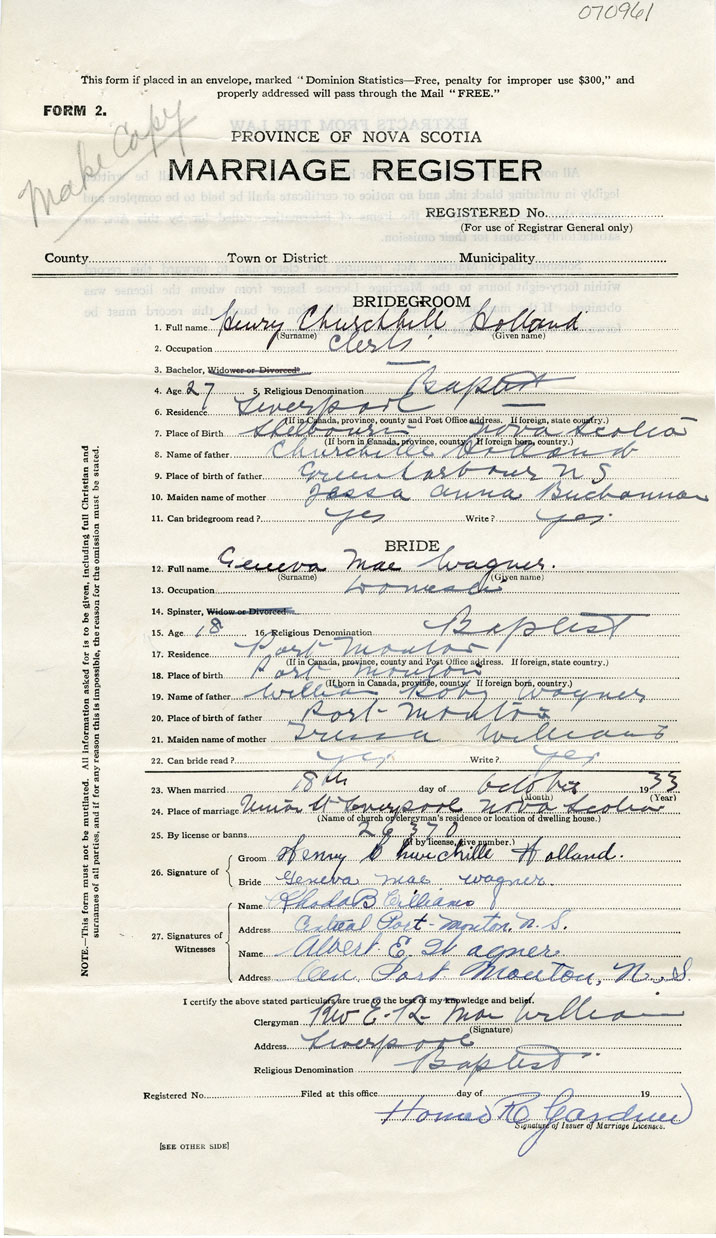 070961
This form if placed in an envelope, marked "Dominion Statistics—Free, penalty for improper use $300," and
properly addressed will pass through the Mail "FREE."
FORM 2.
Make Copy
PROVINCE OF NOVA SCOTIA
MARRIAGE REGISTER
REGISTERED No.
(For use of Registrar General only)
County Town or District Municipality
BRIDEGROOM
1. Full name Henry Churchill Holland
(Surname) (Given name)
2. Occupation Clerk
3. Bachelor, Widower or Divorced
4. Age 27 5. Religious Denomination Baptist
6. Residence Liverpool
(If in Canada, province, county and Post Office address. If foreign, state country.)
7. Place of Birth Shelburne Nova Scotia
(If born in Canada, province, country. If foreign born, country.)
8. Name of father Churchille Holland
9. Place of birth of father Green Harbour N S
10. Maiden name of mother Jessa Anna Buchannan
11. Can bridegroom read? yes Write? yes
BRIDE
12. Full name Geneva Mae Wagner.
(Surname) (Given name)
13. Occupation Domestic
14. Spinster, Widow or Divorced
15. Age 18 16. Religious Denomination Baptist
17. Residence Port Mouton
(If in Canada, province, county and Post Office address. If foreign, state country.)
18. Place of birth Port Mouton
(If born in Canada, province, county. If foreign born, country.)
19. Name of father William Wagner
20. Place of birth of father Port Mouton
21. Maiden name of mother Williams
22. Can bride read? yes Write? yes
23. When married 18th day of October 1933
(Month) (Year)
24. Place of marriage Union St Liverpool Nova Scotia
(Name of church or clergyman's residence or location of dwelling house.)
25. By license or banns 26370
(If by license, give number.)
26. Signature of
Groom Henry Churchille Holland.
Bride Geneva mae wagner.
27. Signatures of Witnesses
Name Rhoda B Williams
Address Central Port-Mouton, N.S.
Name Albert E. Wagner
Address Cen. Port Mouton, N.S.
I certify the above stated particulars are true to the best of my knowledge and belief.
Clergyman Rev E. William
(Signature)
Address Liverpool
Religious Denomination Baptist
Registered No. Filed at this office day of 19
Homer R Gardner
Signature of Issuer of Marriage Licenses.
[SEE OTHER SIDE]
NOTE.—This form must not be mutilated. All information asked for is to be given, including full Christian and
surnames of all parties, and if for any reason this is impossible, the reason for the omission must be stated.